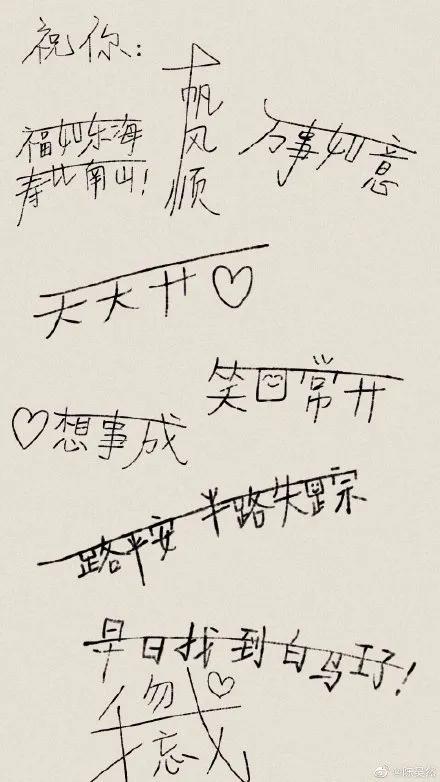 祝你：
一帆风顺
福如东海
寿比南山！
万事如意
天天开♡
笑口常开
♡想事成
一路平安 半路失踪
早日找到白马王子！
勿忘我♡
@陈昊